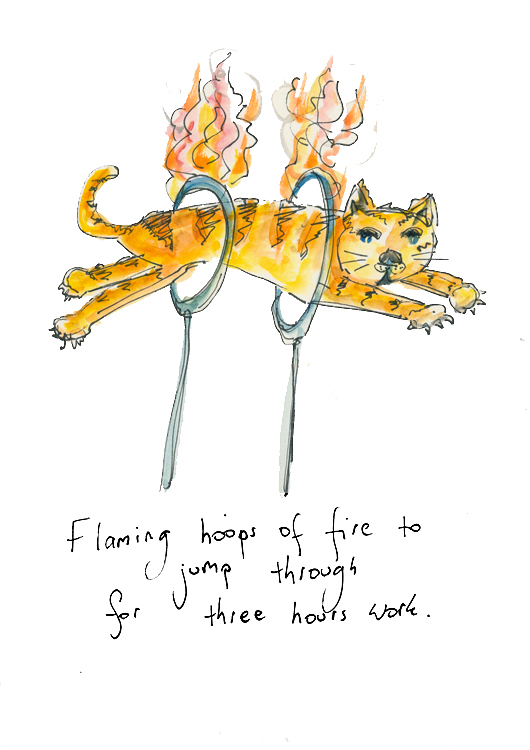 Flaming hoops of fire to
jump through
for three hours work.